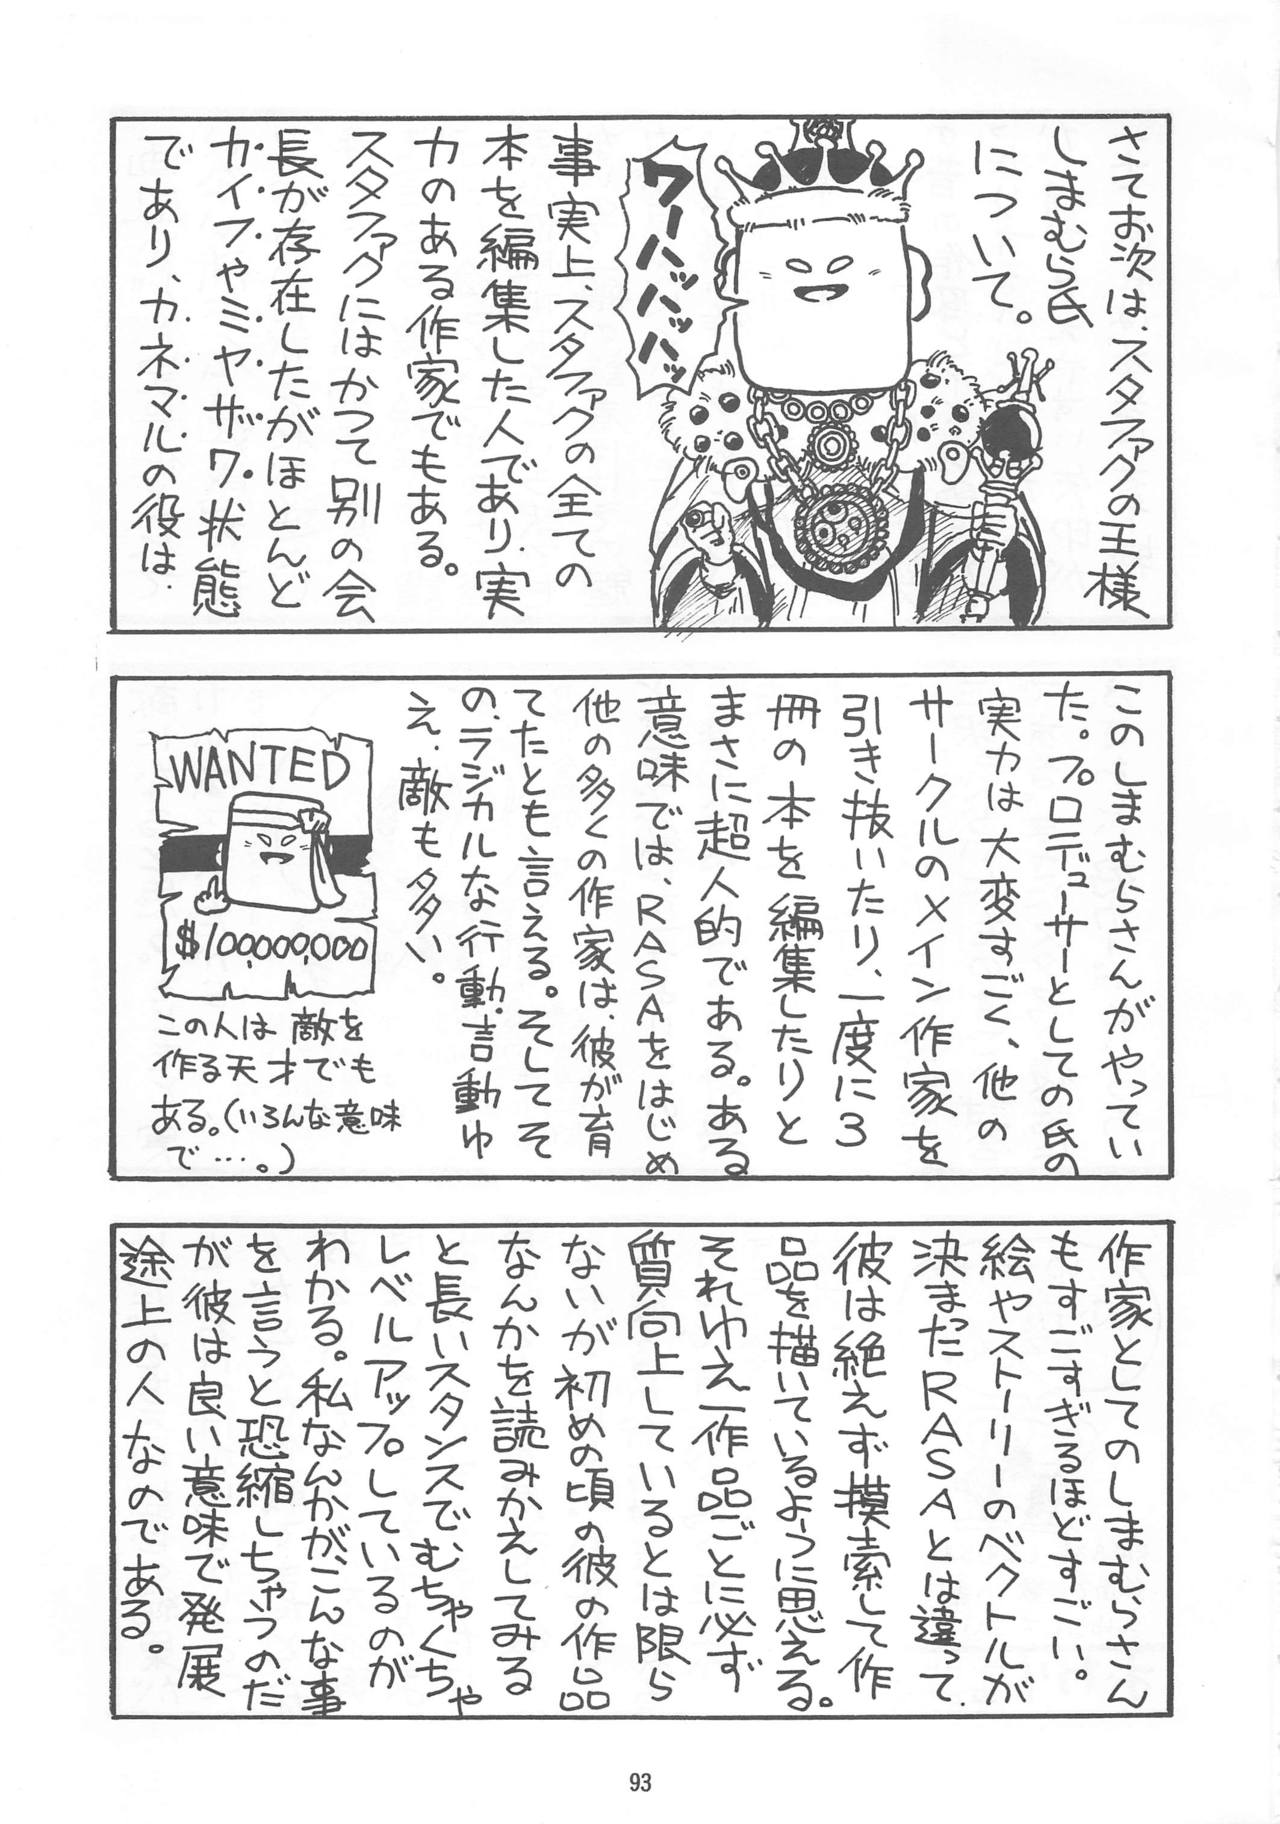 さてお次は、スタファグの王様
しまむら氏
について。
ワーハッハッハッ
事実上、スタファグの全ての
本を編集した人であり、実
力のある作家でもある。
スタファグにはかつて別の会
長が存在したがほとんど
カイフやミヤザワ状態
であり、カネマルの役は、
このしまむらさんがやってい
た。プロデューサーとしての氏の
実力は大変すごく、他の
サークルのメイン作家を
引き抜いたり、一度に3
冊の本を編集したりと
まさに超人的である。ある
意味では、RASAをはじめ
他の多くの作家は、彼が育
てたとも言える。そしてそ
の、ラジカルな行動、言動ゆ
え、敵も多い。
WANTED
$100,000,000
この人は敵を
作る天才でも
ある。(いろんな意味
で…。)
作家としてのしまむらさん
もすごすぎるほどすごい。
絵やストーリーのベクトルが
決まったRASAとは違って、
彼は絶えず摸索して作
品を描いているように思える。
それゆえ一作品ごとに必ず
質向上しているとは限ら
ないが初めの頃の彼の作品
なんかを読みかえしてみる
と長いスタンスでむちゃくちゃ
レベルアップしているのが
わかる。私なんかがこんな事
を言うと恐縮しちゃうのだ
が彼は良い意味で発展
途上の人なのである。
93